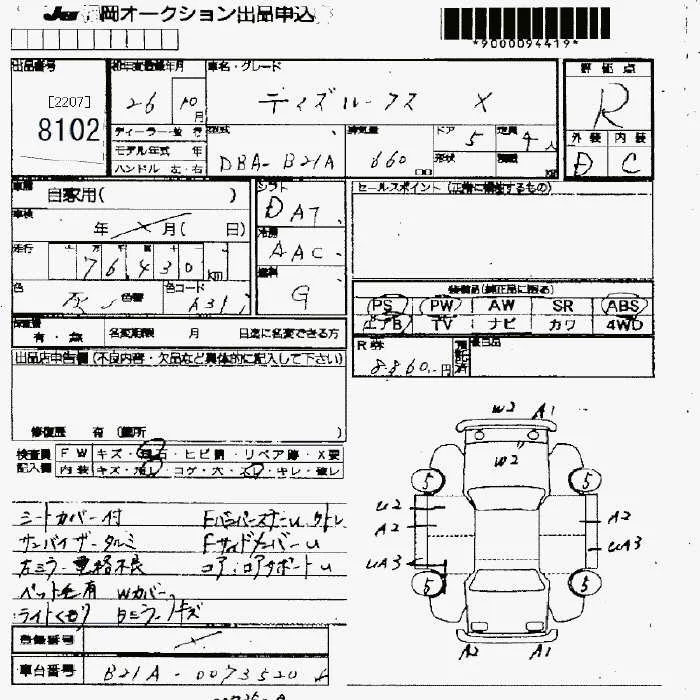 JU 岡オークション出品申込
*9000094419*
出品番号 初年度登録年月 車名・グレード 評価点
[2207]
8102
26 10月 デイズルークス X R
ディーラー・並行 型式 排気量 ドア 定員 外装 内装
モデル年式 年 DBA-B21A 660 5 4人 D C
ハンドル 左・右 cc 形状
車歴 自家用( ) シフト セールスポイント (正確に記載するもの)
DAT
車検 年 月( 日) 冷房
AAC
走行 76,430 km 燃料
G
色 色替 色コード 装備品(純正品に限る)
A31 PS PW AW SR ABS
エアB TV ナビ カワ 4WD
保証書 有・無 名変期限 月 日迄に名変できる方
R券 8860 円 預託済 後日品
出品店申告欄 (不良内容・欠品など具体的に記入して下さい)
修復歴 有 (箇所 )
検査員 FW キズ・飛石・ヒビ割・リペア跡・X要
記入欄 内装 キズ・汚レ・コゲ・穴・スレ・キレ・破レ
シートカバー付
サンバイザータルミ FサイドメンバーU
左ミラー格納不良 コア、コアサポートU
ペット毛有 Wカバー
ライトくもり
W2 A1
W2
5 5
U2 A2
A2 UA3
UA3
5 5
A2 A1
登録番号
車台番号 B21A-0073520